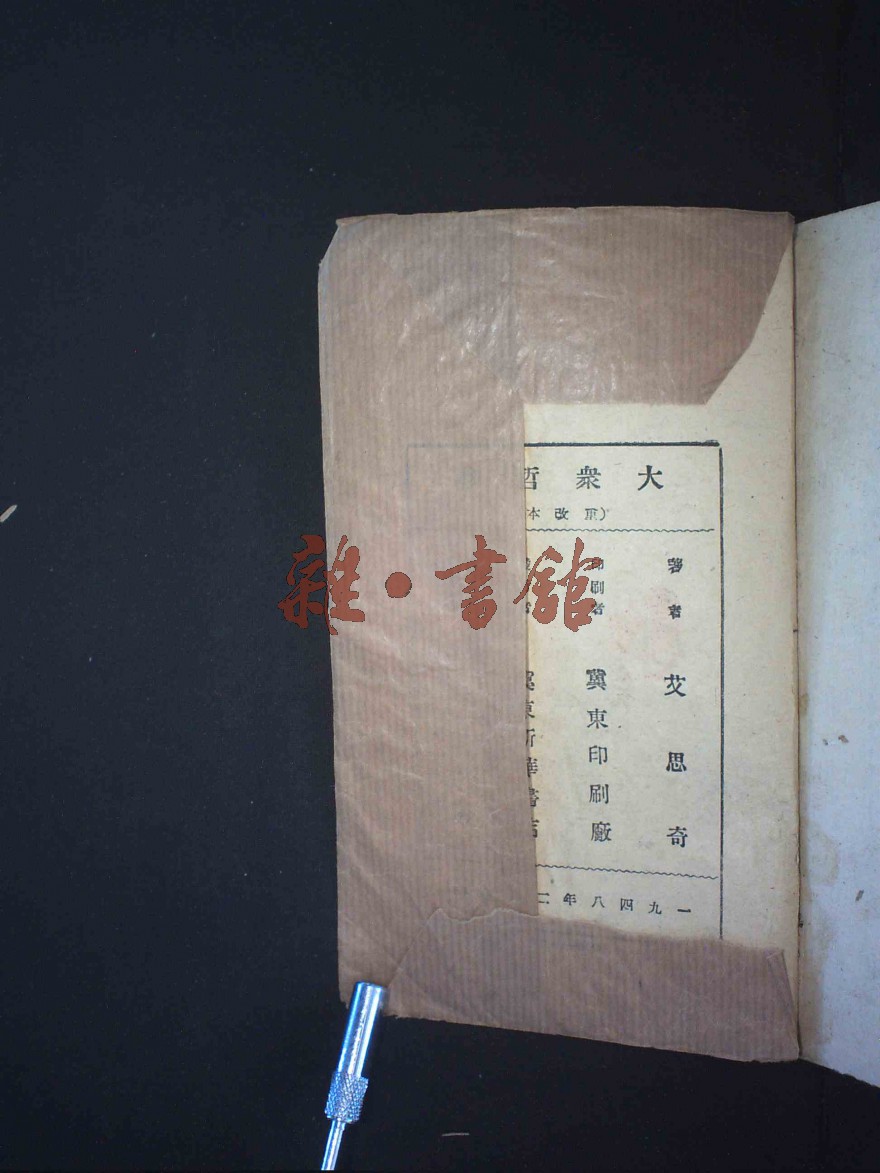 大衆哲
（重改本
著者 艾思奇
印刷者 冀東印刷廠
者 冀東新華書店
一九四八年二
雜·書館